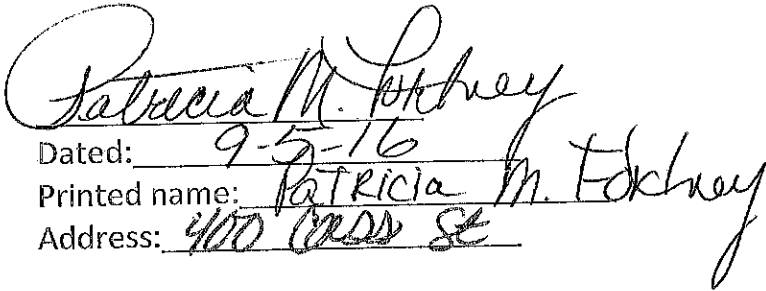 Patricia M. Fokhey
Dated: 9-5-16
Printed name: PATRICIA M. Fokhey
Address: 400 Cass St